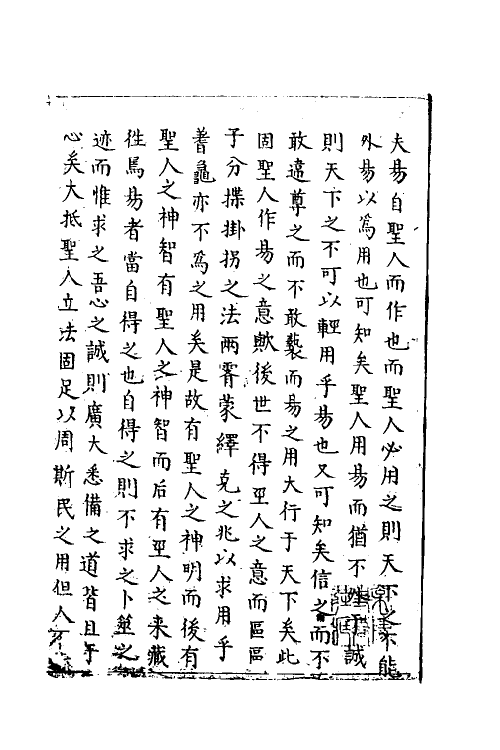 夫易自聖人而作也而聖人必用之則天下之不能
外易以為用也可知矣聖人用易而猶不誠
則天下之不可以輕用乎易也又可知矣信之而不
敢違尊之而不敢褻而易之用大行于天下矣此
固聖人作易之意歟後世不得聖人之意而區區
于分揲掛拐之法兩霽蒙繹克之兆以求用乎
蓍龜亦不為之用矣是故有聖人之神明而後有
聖人之神智有聖人之神智而后有聖人之来藏
徃焉易者當自得之也自得之則不求之卜筮之
迹而惟求之吾心之誠則廣大悉備之道皆且于
心矣大抵聖人立法固足以周斯民之用但人